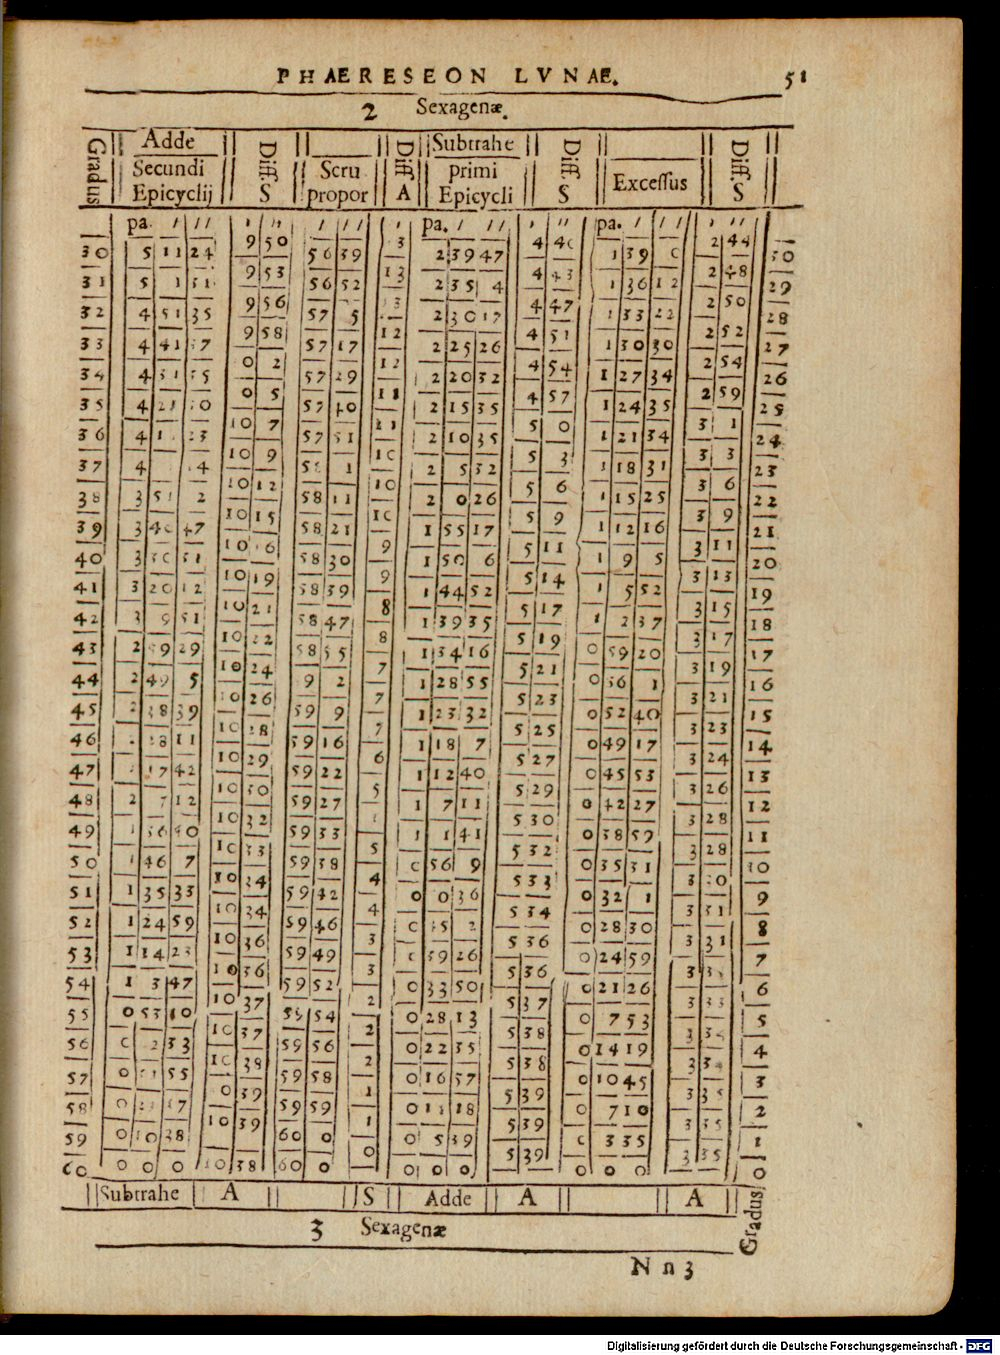 PHAERESEON LVNAE. 51
2 Sexagenæ.
Gradus Adde Diff. Diff Subtrahe Diff. Diff.
Secundi Scru primi Excessus
Epicyclij S propor A Epicycli S S
pa. ' '' ' '' ' '' ' pa. ' '' ' '' pa. ' '' ' ''
30 5 11 24 9 50 56 39 3 2 39 47 4 1 39 2 44 30
31 5 1 31 9 53 56 52 13 2 35 4 4 43 1 36 12 2 48 29
32 4 51 35 9 56 57 5 3 2 30 17 4 47 1 33 22 2 50 28
33 4 41 37 9 58 57 17 12 2 25 26 4 51 1 30 30 2 52 27
34 4 31 35 0 2 57 29 12 2 20 32 4 54 1 27 34 2 54 26
35 4 21 0 5 57 40 11 2 15 35 4 57 1 24 35 2 59 25
36 4 1 23 10 7 57 51 11 2 10 35 5 0 1 21 34 3 1 24
37 4 4 10 9 5 1 10 2 5 32 5 3 1 18 31 3 3 23
38 3 51 2 10 12 58 11 10 2 0 26 5 6 1 15 25 3 6 22
39 3 40 47 10 15 58 21 10 1 55 17 5 9 1 12 16 3 9 21
40 3 30 31 10 6 58 30 9 1 50 6 5 11 1 9 5 3 11 20
41 3 20 12 10 19 58 39 9 1 44 52 5 14 1 5 52 3 13 19
42 3 9 51 10 21 58 47 8 1 39 35 5 17 1 2 37 3 15 18
43 2 59 29 10 22 58 55 8 1 34 16 5 19 0 59 20 3 17 17
44 2 49 5 10 24 9 2 7 1 28 55 5 21 0 56 1 3 19 16
45 2 38 39 10 26 59 9 7 1 23 32 5 23 0 52 40 3 21 15
46 28 11 10 28 59 16 7 1 18 7 5 25 0 49 17 3 23 14
47 17 42 10 29 59 22 6 1 12 40 5 27 0 45 53 3 24 13
48 2 7 12 10 30 59 27 5 1 7 11 5 29 0 42 27 3 26 12
49 1 56 40 10 32 59 33 1 1 41 5 30 0 38 59 3 28 11
50 1 46 7 10 33 59 38 5 0 56 9 5 32 0 35 31 3 28 10
51 1 35 33 10 34 59 42 4 0 0 36 5 33 0 32 1 3 30 9
52 1 24 59 10 34 59 46 4 0 35 2 5 34 0 28 30 3 31 8
53 1 14 23 10 36 59 49 3 39 26 5 36 0 24 59 3 31 7
54 1 3 47 10 36 59 52 3 0 33 50 5 36 0 21 26 3 3 6
55 0 53 10 10 37 59 54 2 0 28 13 5 37 0 7 53 3 33 5
56 0 2 33 10 37 59 56 2 0 22 35 5 38 0 14 19 3 34 4
57 0 31 55 10 38 59 58 2 0 16 57 5 38 0 10 45 3 34 3
58 0 21 17 0 39 59 59 1 0 11 18 5 39 0 7 10 3 35 2
59 0 10 38 10 39 60 0 1 0 5 39 5 39 0 3 35 3 35 1
60 0 0 0 10 38 60 0 0 0 0 0 5 39 0 0 0 3 35 0
Subtrahe A S Adde A A Gradus
3 Sexagenæ
Nn3
Digitalisierung gefördert durch die Deutsche Forschungsgemeinschaft - DFG